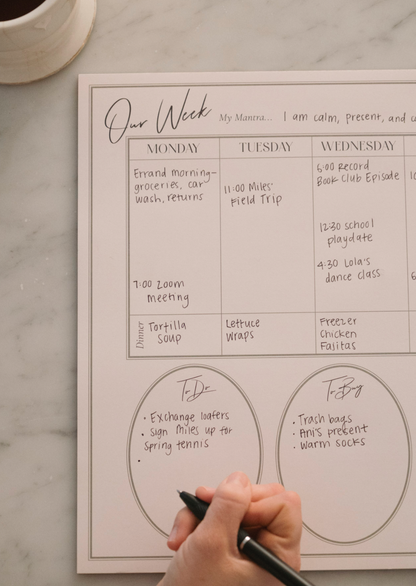 Our Week My Mantra... I am calm, present, and
MONDAY TUESDAY WEDNESDAY
Errand morning-
groceries, car
wash, returns
7:00 Zoom
meeting
11:00 Miles'
Field Trip
Record
Book Club Episode
12:30 school
playdate
4:30 Lola's
dance class
Dinner
Tortilla
Soup
Lettuce
Wraps
Freezer
Chicken
Fajitas
To Do
• Exchange loafers
• Sign Miles up for
Spring tennis
•
To Buy
• Trash bags
• Ani's present
• Warm socks